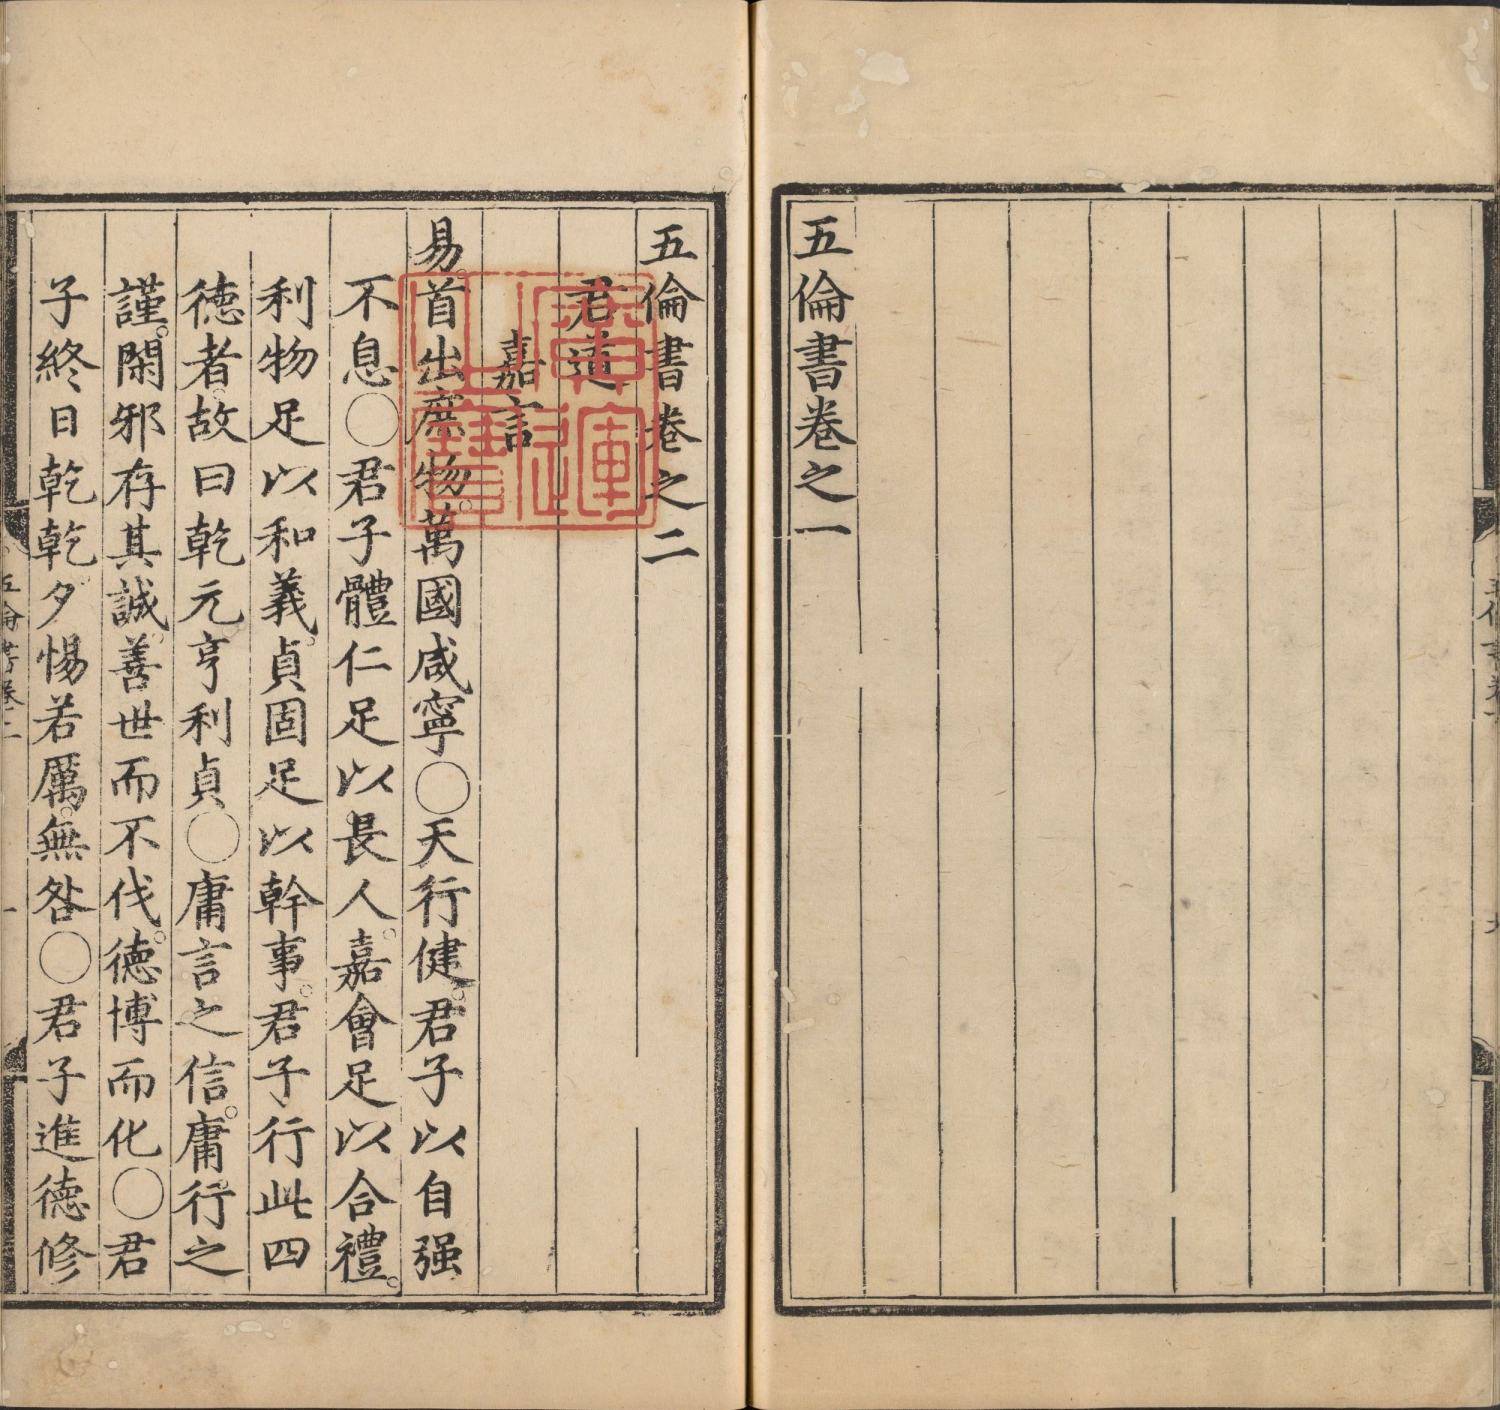 五倫書卷之一
五倫書卷之二
君道
嘉言
易。首出庶物。萬國咸寧〇天行健。君子以自强
不息〇君子體仁足以長人。嘉會足以合禮。
利物足以和義。貞固足以幹事。君子行此四
德者。故曰乾元亨利貞〇庸言之信。庸行之
謹。閑邪存其誠。善世而不伐。德博而化〇君
子終日乾乾夕惕若厲。無咎〇君子進德修
五倫書卷二
一